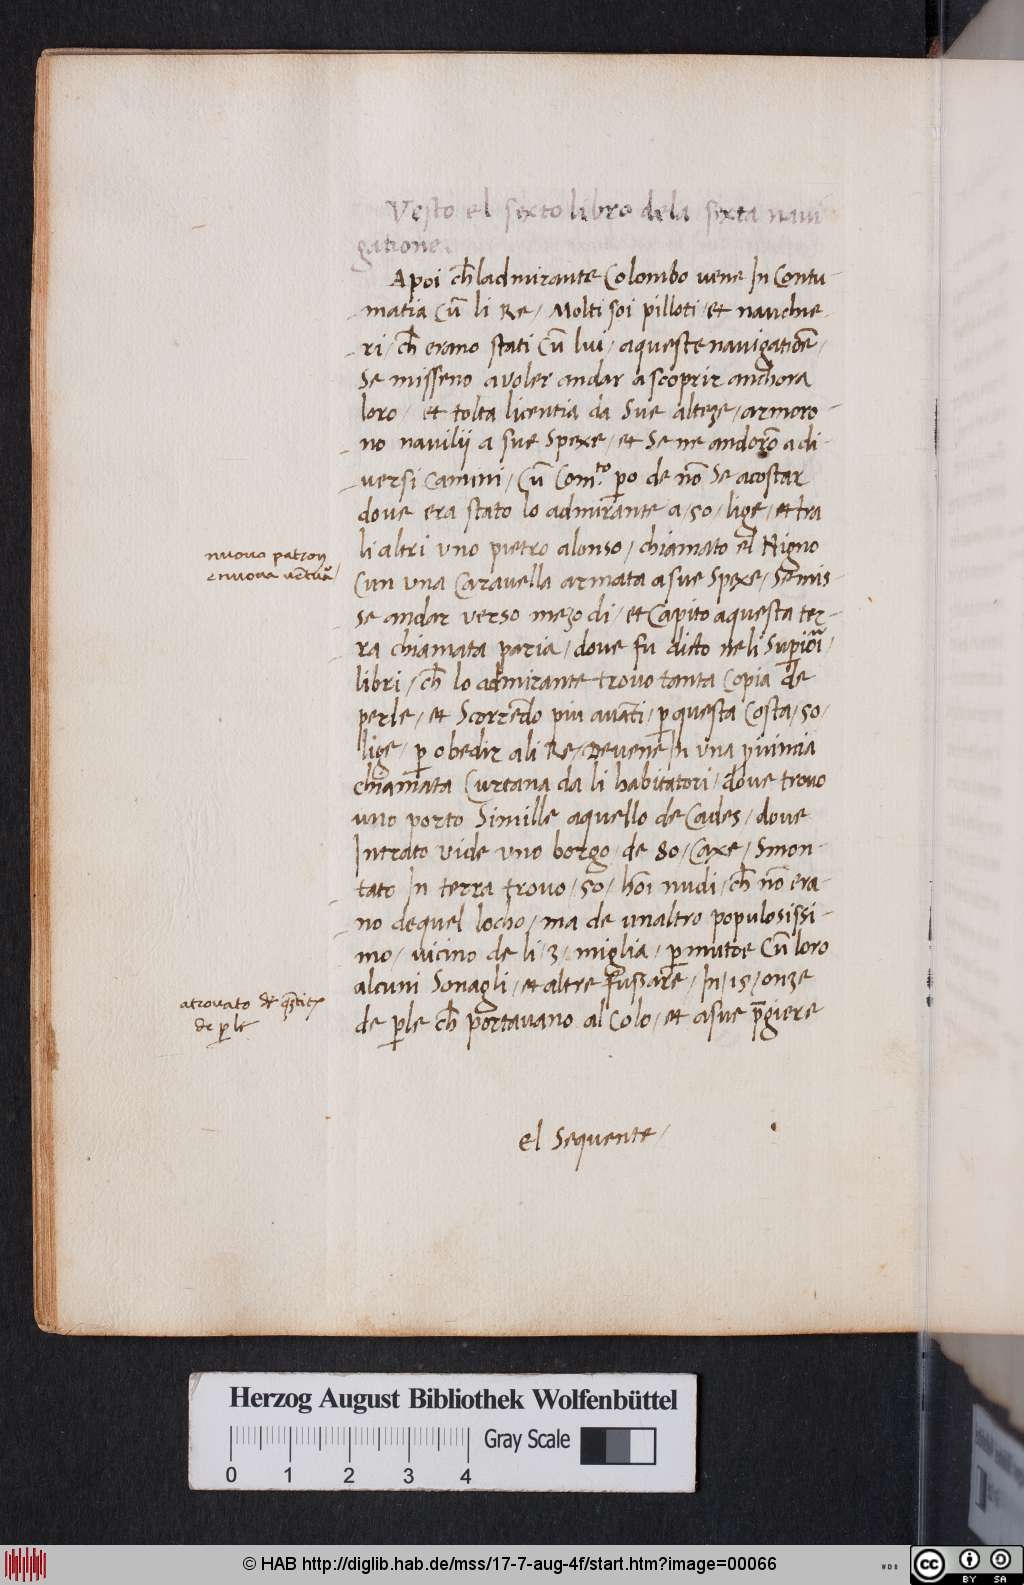 Vesto el sexto libro dela sexta navi
gatione.
Apoi ch̄ ladmirante Colombo vene In Contu-
matia Cū li Re / Molti soi pilloti / et nauchie-
ri / ch̄ erano stati Cū lui / aqueste navigatiōe /
Se misseno a voler andar a scoprir anchora
loro / et tolta licentia da Sue alteze / armoro-
no navilii a sue Spexe / et Se ne andorō a di-
versi Camini / Cū Com.to p̱o de nō Se acostar
dove era stato lo admirante a / 50 / lige / et tra
li altri uno pietro alonso / chiamato el Nigno
Cun una Caravella armata a sue Spexe / Se mis-
se andar verso mezo di / et Capito aquesta ter-
ra chiamata paria / dove fu dicto neli Sup̱iori /
libri / ch̄ lo admirante trovo tanta Copia de
perle / et Scorrēdo piu avāti / p̱ questa Costa / 50 /
lige / p̱ obedir ali Re / Devene In una p̱vincia
chiamata Curtana da li habitatori / dove trovo
uno porto Simille aquello de Cades / dove
Intrato vide uno borgo / de 80 / Caxe / Smon-
tato In terra trovo / 50 / hōi nudi / ch̄ nō era-
no dequel locho / ma de unaltro populosissi-
mo / vicino de li / 3 / miglia / p̱mutoe Cū loro
alcuni Sonagli / et altre fussare / In / 15 / onze
de p̱le ch̄ portavano al Colo / et a sue p̄giere
nuovo patron
e nuova vētura /
atrovato de
de p̱le
el Sequente /
Herzog August Bibliothek Wolfenbüttel
0 1 2 3 4
Gray Scale
© HAB http://diglib.hab.de/mss/17-7-aug-4f/start.htm?image=00066
cc BY SA